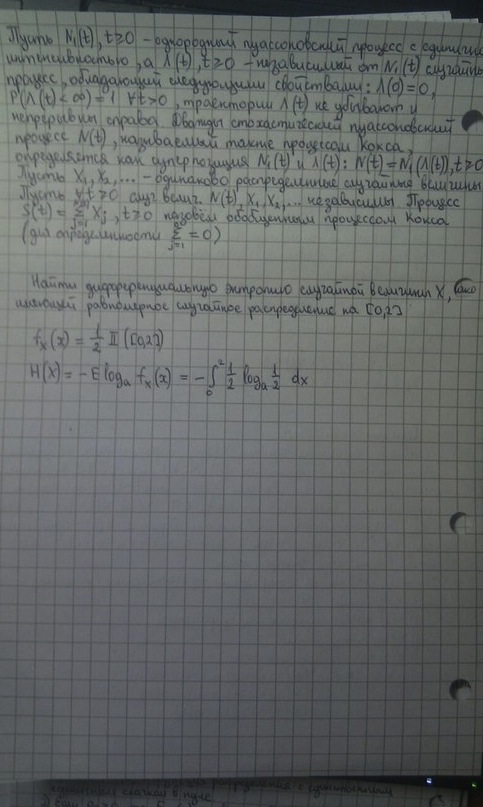 Пусть N₁(t), t≥0 – однородный пуассоновский процесс с единичн
интенсивностью, а Λ(t), t≥0 – независимый от N₁(t) случайн
процесс, обладающий следующими свойствами: Λ(0)=0,
P(Λ(t)<∞)=1 ∀t>0, траектории Λ(t) не убывают и
непрерывны справа. Дважды стохастический пуассоновский
процесс N(t), называемый также процессом Кокса,
определяется как суперпозиция N₁(t) и Λ(t): N(t)=N₁(Λ(t)), t≥0
Пусть X₁, X₂,... – одинаково распределенные случайные величины
Пусть ∀t>0 случ велич. N(t), X₁, X₂,... независимы Процесс
S(t) = Σ_{j=1}^{N(t)} Xⱼ, t>0 назовём обобщенным процессом Кокса
(для определенности Σ_{j=1}^{0} = 0)
Найти дифференциальную энтропию случайной величины X,
имеющей равномерное случайное распределение на [0,2]
f_X(x) = 1/2 II ([0,2])
H(X) = -E logₐ f_X(x) = -∫₀² 1/2 logₐ 1/2 dx